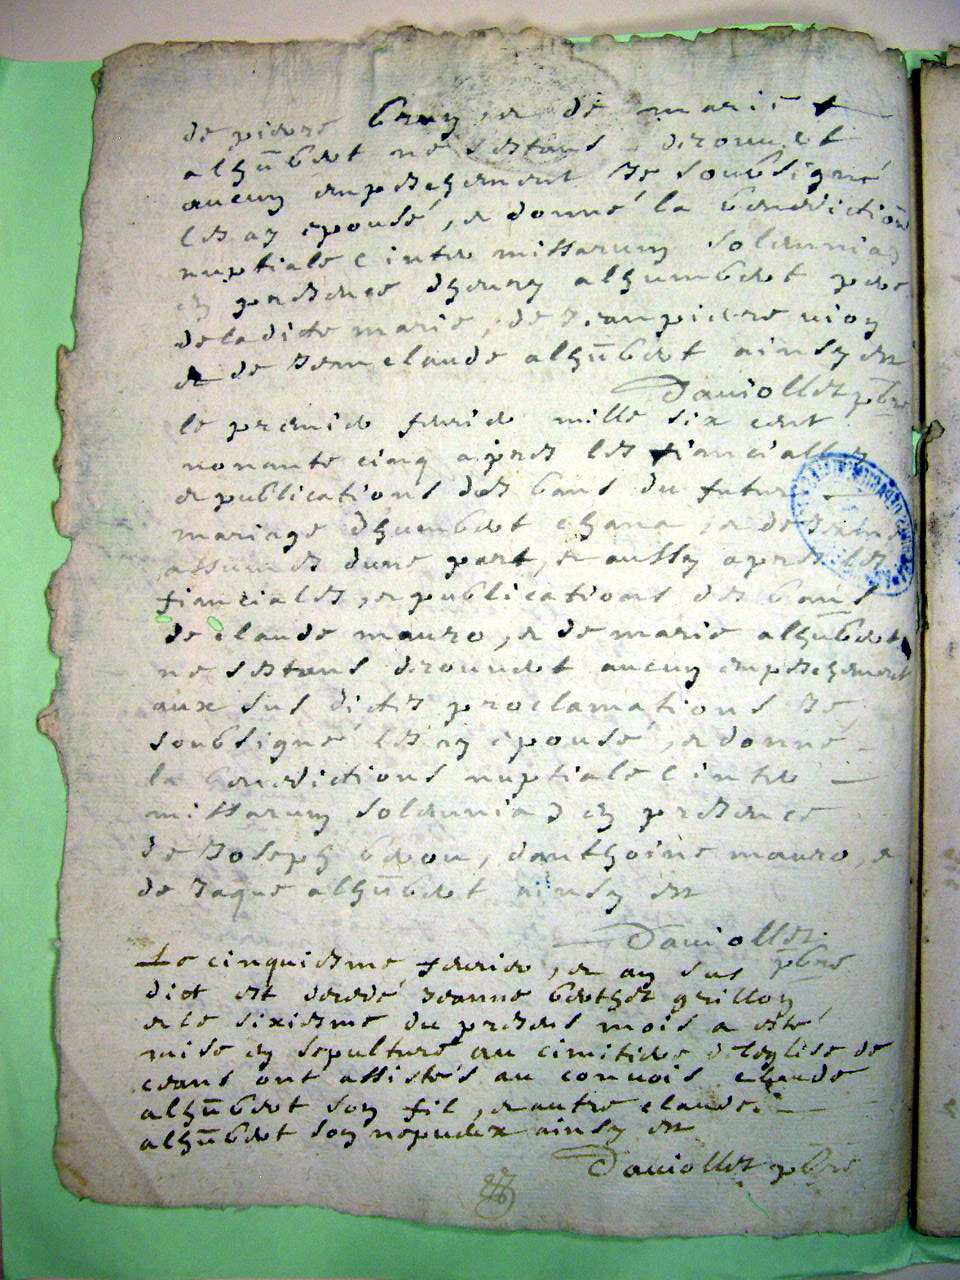 de pierre Gruy, et de marie
alhūbert ne sestans trouuet
aucuny empeschement Je soubsigné
les ay epousé, et donné la benediction
nuptiale intra missarum solemnia
en presence dhenry alhumbert pere
de ladicte marie, de Jeanpierre
et de Jean claude alhūbert ainsy est
Dauiollet pbre
le premier feurier mille six cent
nonante cinq apres les fiancialles
et publications des bans du futur
mariage dhumbert chana, et de
dune part, et aussy apres les
fiancialles, et publications des bans
de claude mauro, et de marie alhūbert
ne sestans trouuet aucuny empeschement
aux sus dictes proclamations Je
soubsigné les ay epousé, et donné
la benedictions nuptiale intra
missarum solemnia en presence
de Joseph, danthoine mauro et
de Jaque alhūbert ainsy est
Dauiollet
pbre
Le cinquiesme feurier, et an sus
dict est decedé Jeanne berthet grillon
et le sixiesme du presens mois a esté
mise en sepulture au cimitiere de leglise de
ceans ont assistés au conuois claude
alhūbert son fil, et autre claude
alhūbert son nepueux ainsy est
Dauiollet pbre